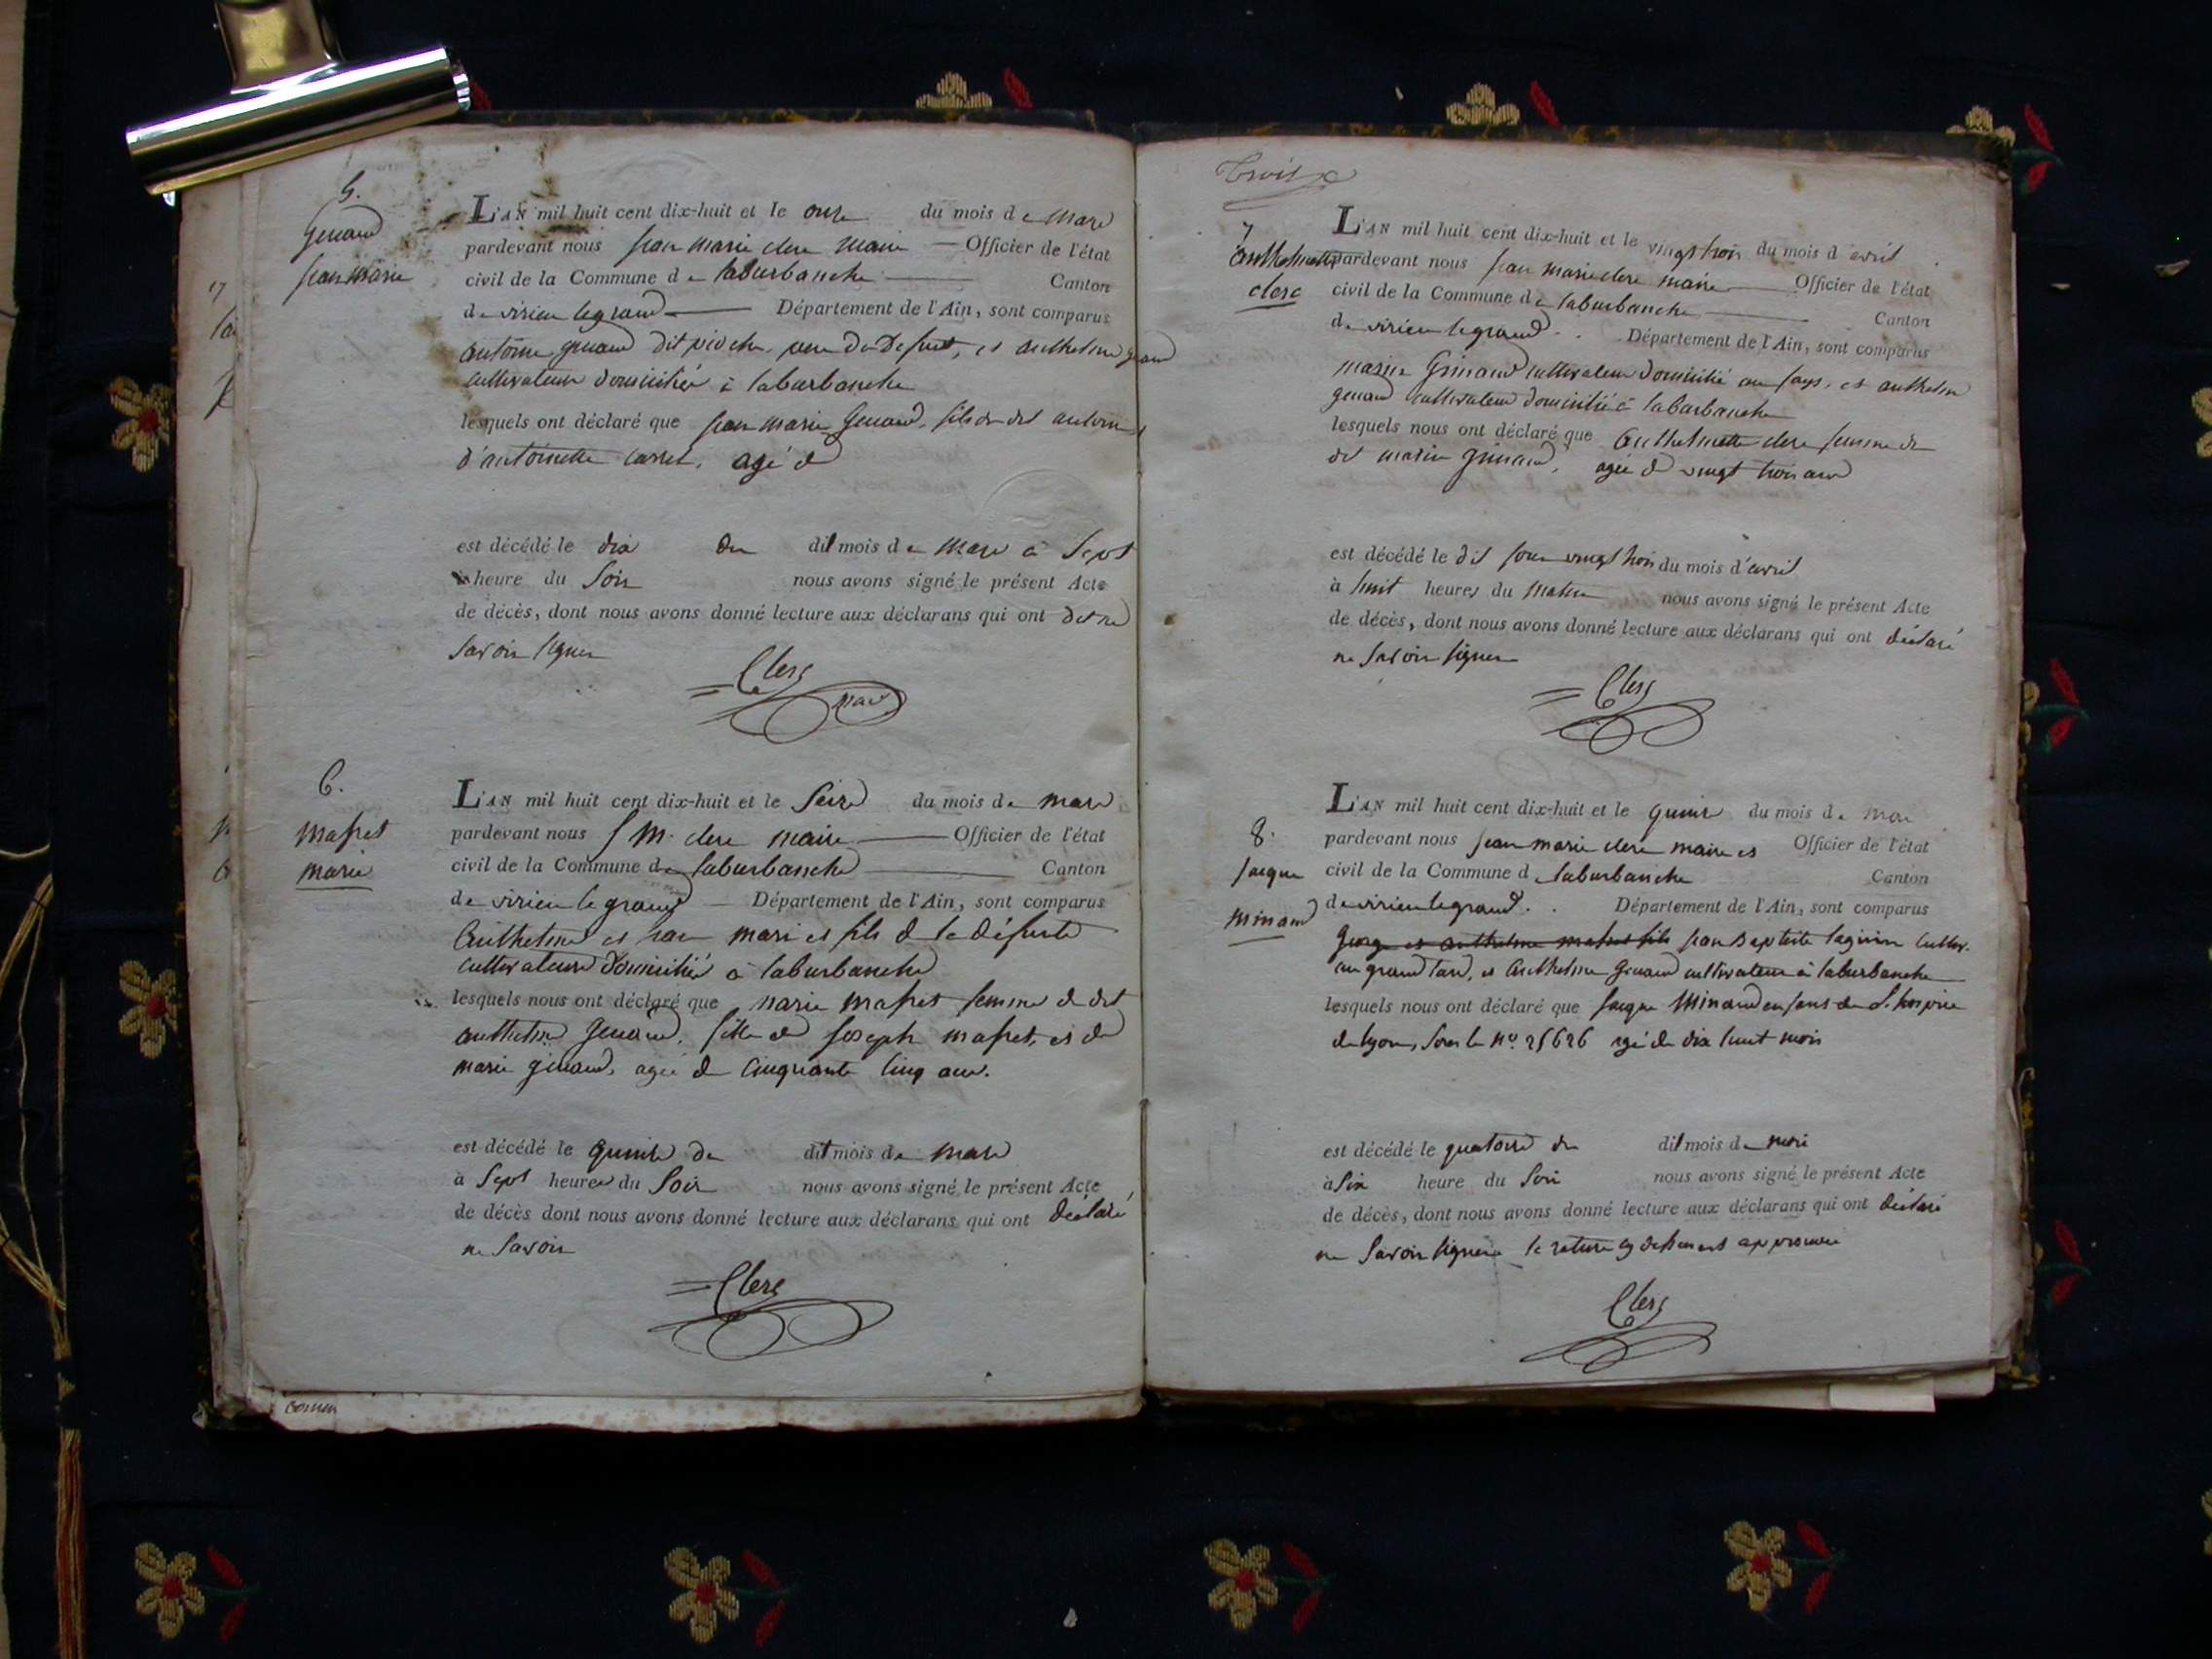 5.
Genaud
Jean Marie
L'AN mil huit cent dix-huit et le onze du mois de mars
pardevant nous Jean marie clerc maire Officier de l'état
civil de la Commune de laburbanche Canton
de virieu legrand Département de l'Ain, sont comparus
antoine genaud dit pioche, pere du Defunt, et anthelme genaud
cultivateurs domiciliés à laburbanche
lesquels ont déclaré que jean marie Genaud, fils du dit antoine
d'antoinette carret, agé d
est décédé le dix du dit mois de mars à Sept
heure du Soir nous avons signé le présent Acte
de décès, dont nous avons donné lecture aux déclarans qui ont dit ne
Savoir signer
Clerc
maire
6.
mafret
marie
L'AN mil huit cent dix-huit et le Seize du mois de mars
pardevant nous J M. clerc maire Officier de l'état
civil de la Commune de laburbanche Canton
de virieu le grand Département de l'Ain, sont comparus
Anthelme et mari et fils d la défunte
cultivateurs domiciliés à laburbanche
lesquels nous ont déclaré que marie mafret femme d dit
anthelme Genaud, fille d joseph mafret, et de
marie genaud, agée d Cinquante Cinq ans.
est décédé le quinze du dit mois de mars
à Sept heures du Soir nous avons signé le présent Acte
de décès dont nous avons donné lecture aux déclarans qui ont déclaré
ne Savoir
Clerc
Trois
7
anthelmette
clerc
L'AN mil huit cent dix-huit et le vingt trois du mois d'avril
pardevant nous jean marie clerc maire Officier de l'état
civil de la Commune de laburbanche Canton
de virieu legrand Département de l'Ain, sont comparus
cultivateur domicilié au et anthelme
genaud cultivateur domicilié à laburbanche
lesquels nous ont déclaré que Anthelmette clerc femme du
dit agée d vingt trois ans
est décédé le dit jour vingt trois du mois d'avril
à huit heures du matin nous avons signé le présent Acte
de décès, dont nous avons donné lecture aux déclarans qui ont déclaré
ne Savoir signer
Clerc
8.
jacque
minand
L'AN mil huit cent dix-huit et le quinze du mois de mai
pardevant nous jean marie clerc maire et Officier de l'état
civil de la Commune d laburbanche Canton
de virieu legrand. Département de l'Ain, sont comparus
george et anthelme mafret fils jean Baptiste cultiv.
au grand et Anthelme Genaud cultivateur à laburbanche
lesquels nous ont déclaré que jacque Minand enfans de l'hospice
de lyon, sous le No. 25626 agé de dix huit mois
est décédé le quatorze du dit mois de mai
à Six heure du Soir nous avons signé le présent Acte
de décès, dont nous avons donné lecture aux déclarans qui ont déclaré
ne Savoir signer le rature cy dessus est approuvée
Clerc